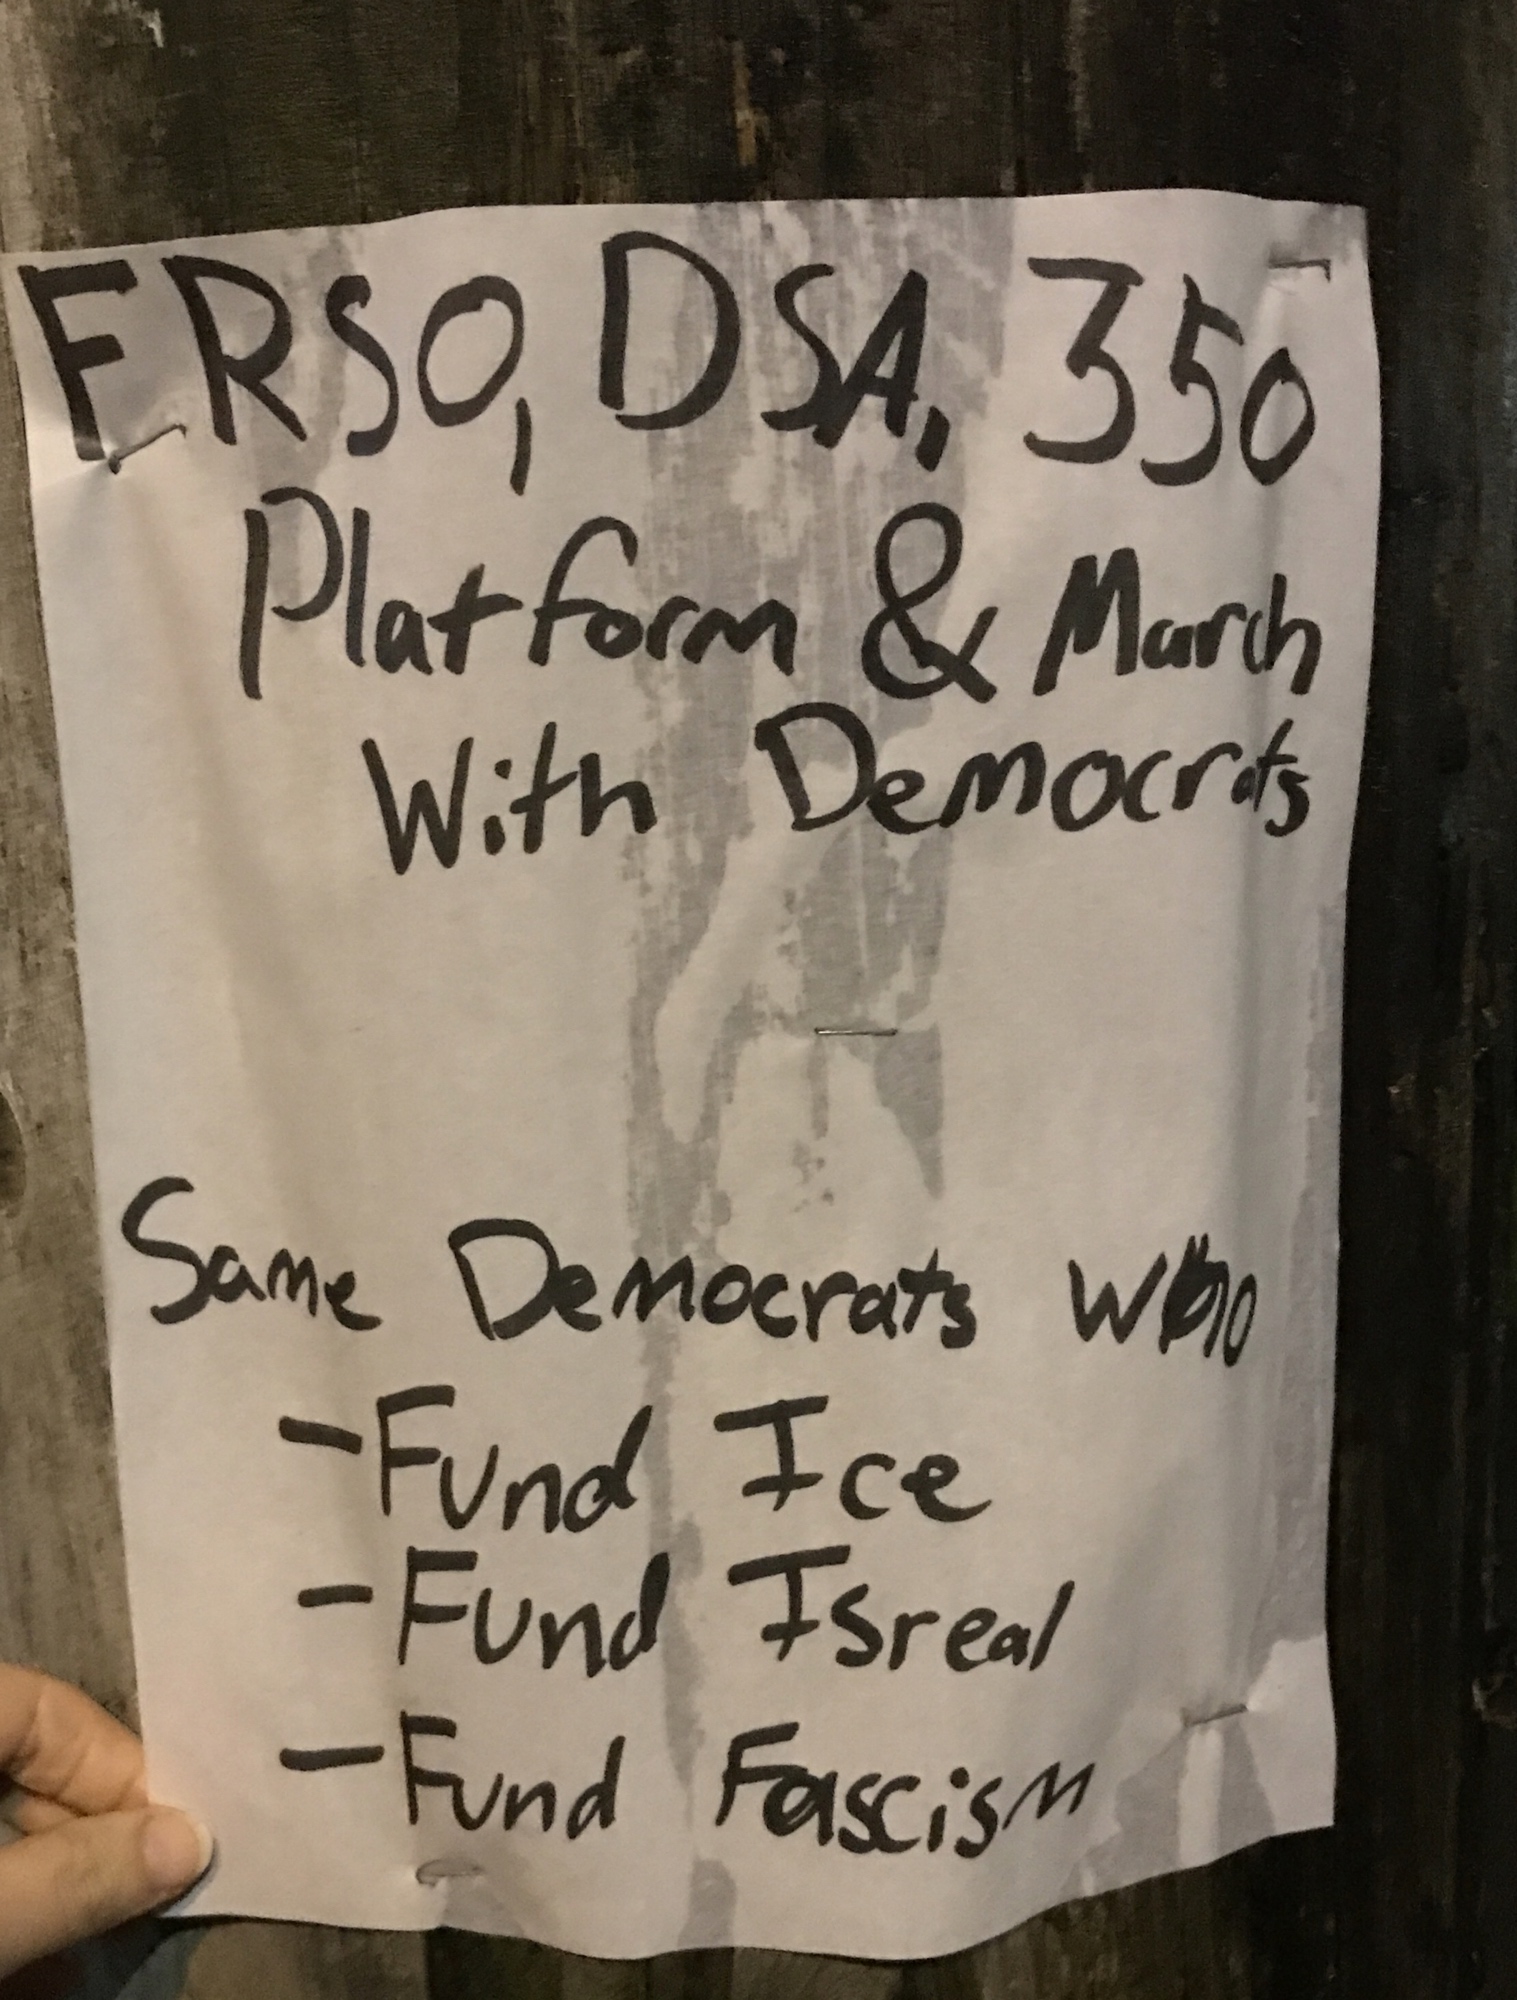 FRSO, DSA, 350
Platform & March
With Democrats
Same Democrats who
-Fund Ice
-Fund Isreal
-Fund Fascism